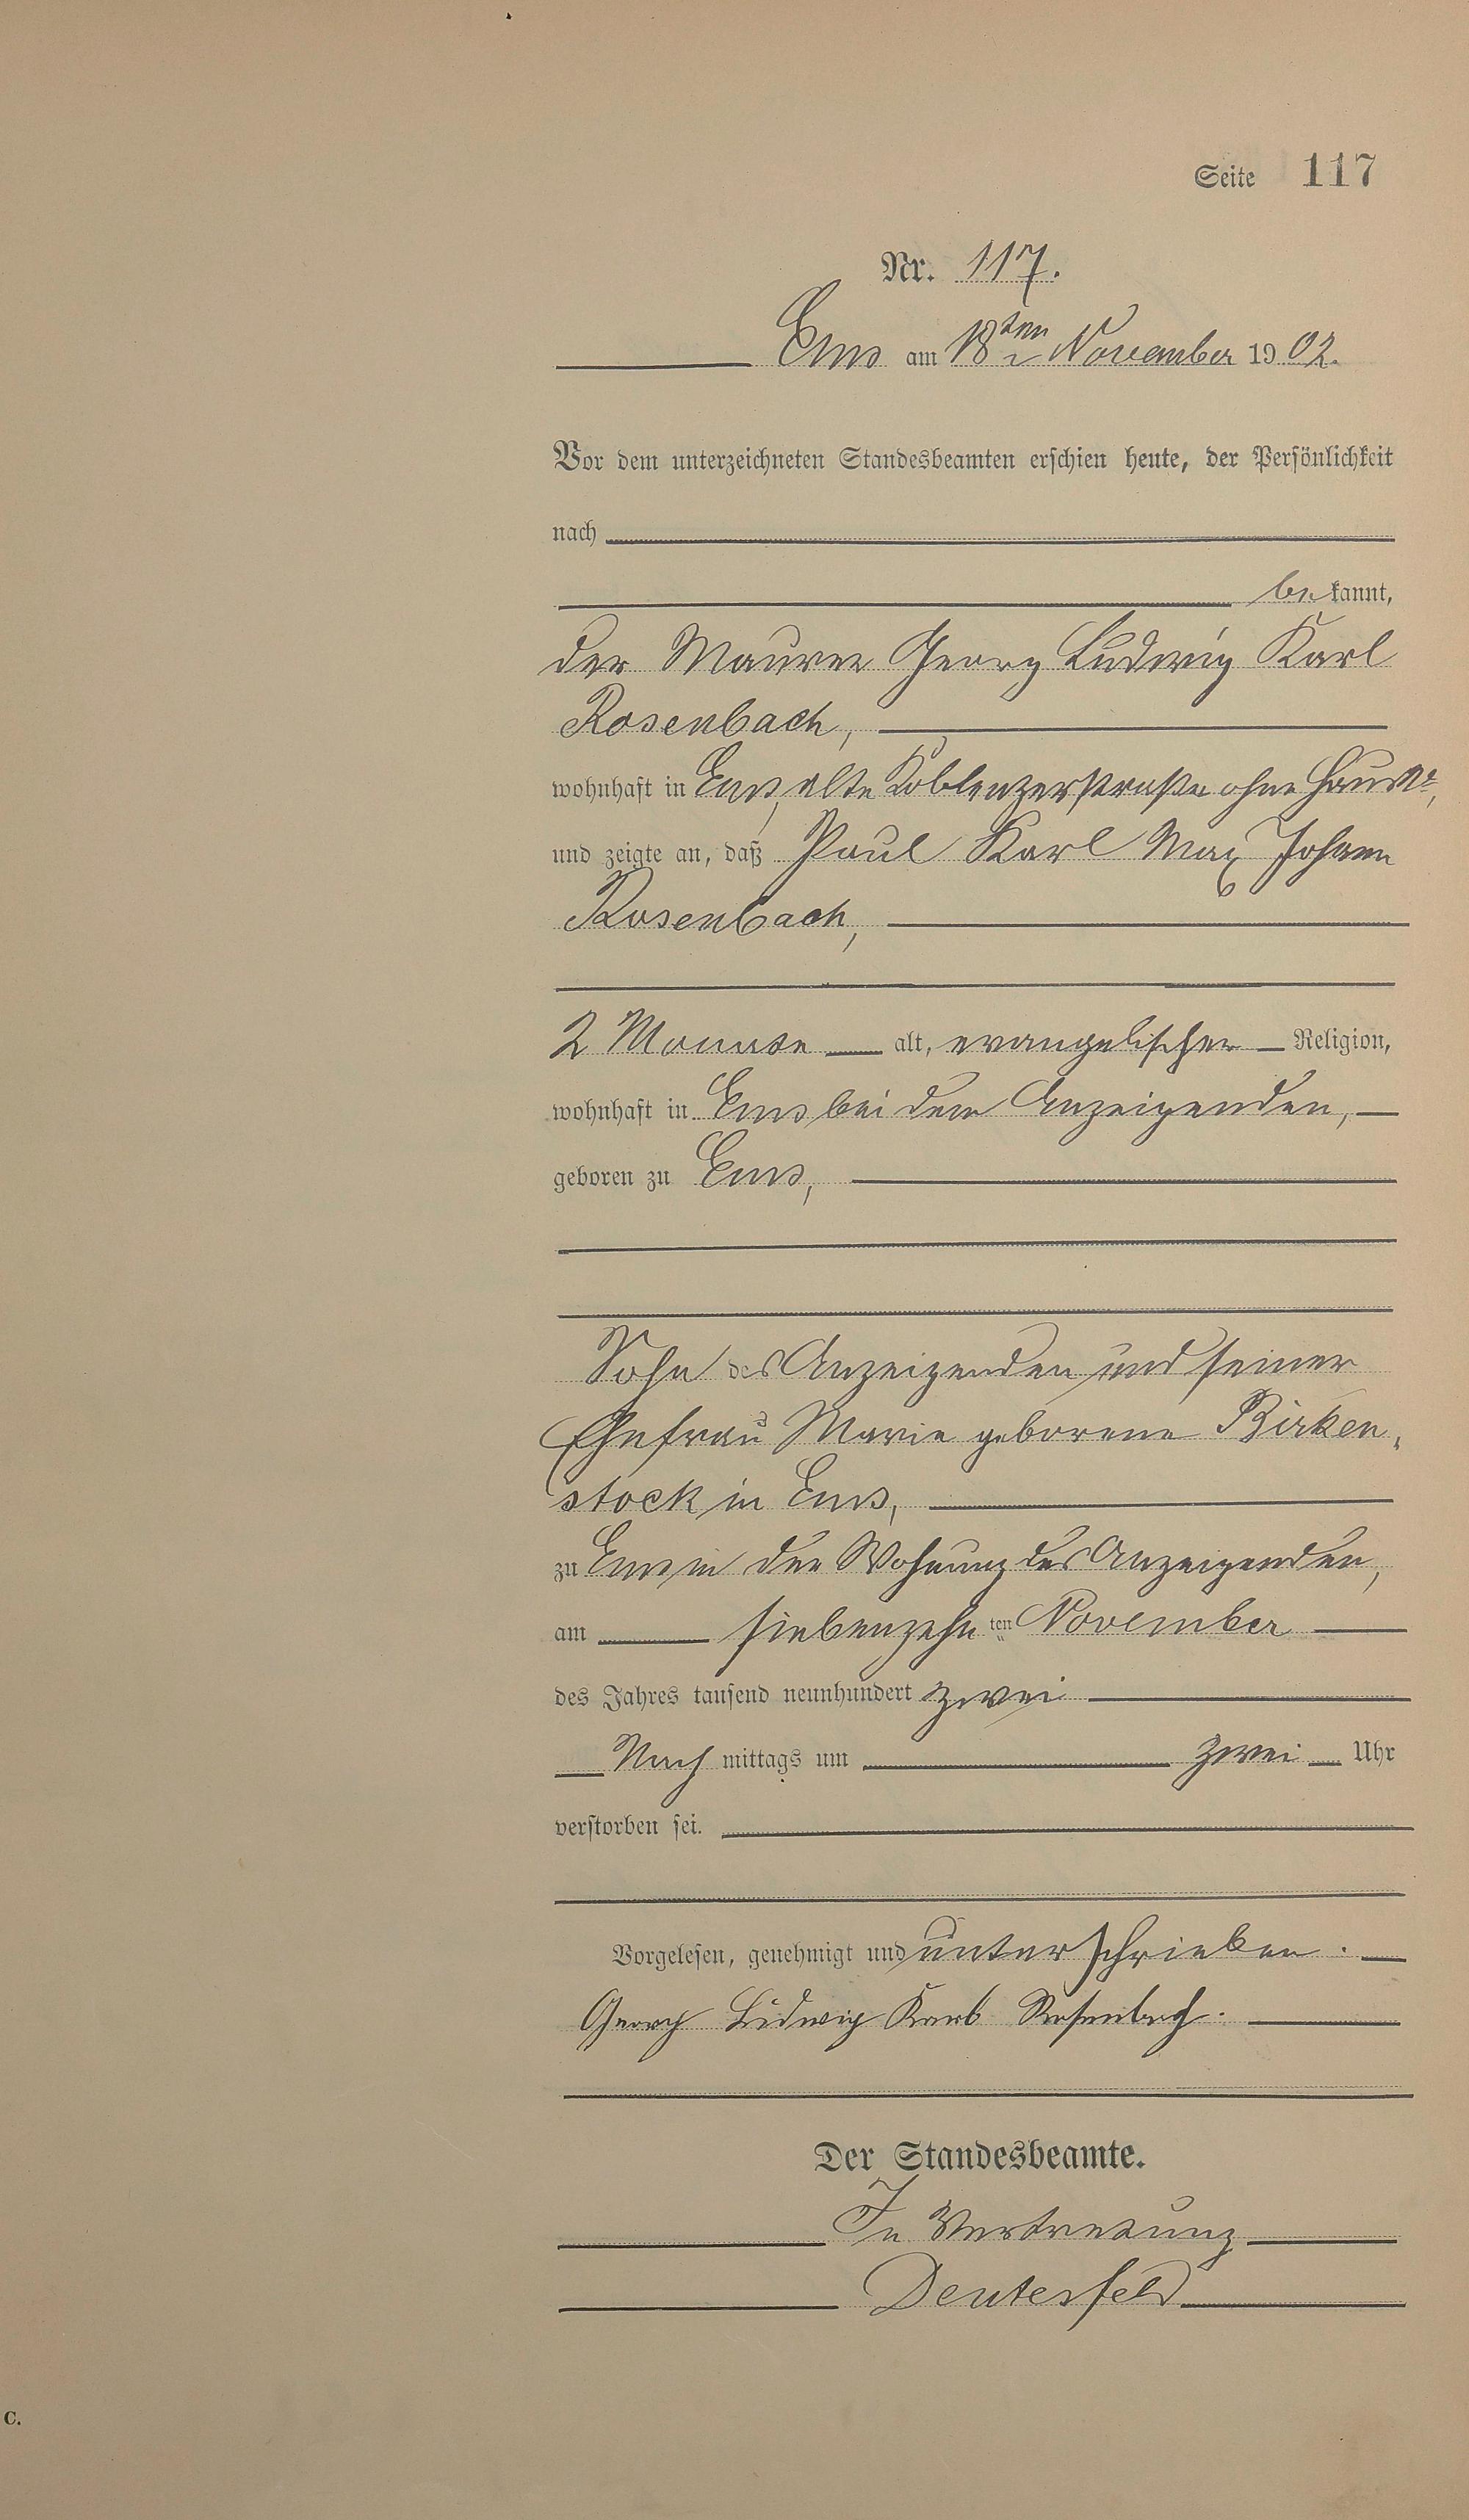 Seite 117
Nr. 117.
Ems am 18ten November 1902.
Vor dem unterzeichneten Standesbeamten erschien heute, der Persönlichkeit
nach
bekannt,
der Maurer Georg Ludwig Karl
Rosenbach,
wohnhaft in Ems, alte Koblenzerstraße ohne Haus Nr,
und zeigte an, daß Paul Karl Max Johann
Rosenbach,
2 Monate alt, evangelischer Religion,
wohnhaft in Ems bei dem Anzeigenden,
geboren zu Ems,
Sohn des Anzeigenden und seiner
Ehefrau Marie geborene Birken-
stock in Ems,
zu Ems in der Wohnung des Anzeigenden,
am siebenzehnten November
des Jahres tausend neunhundert zwei
Nachmittags um zwei Uhr
verstorben sei.
Vorgelesen, genehmigt und unterschrieben.
Georg Ludwig Karl Rosenbach.
Der Standesbeamte.
In Vertretung
Deutesfeld
C.